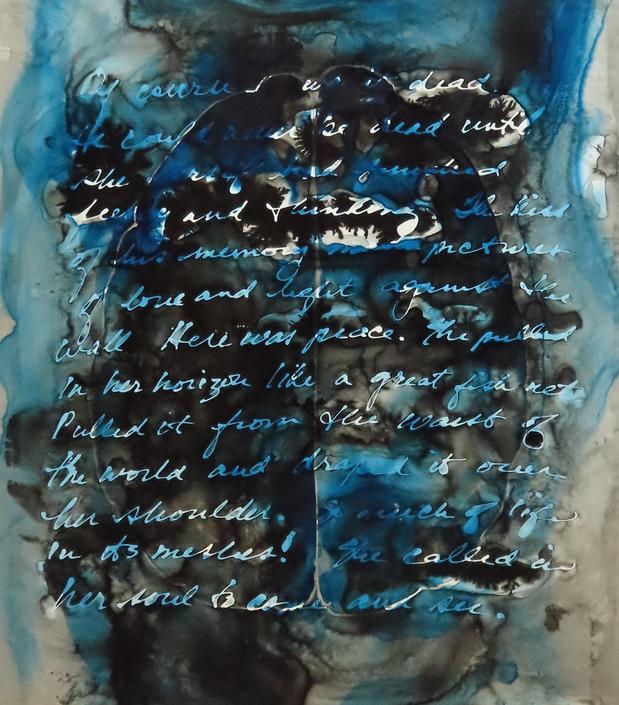 Of course dead.
He could never be dead until
she had finished
and thinking. The kiss
of his memory pictures
of love and light against the
wall Here was peace. She pulled
in her horizon like a great fish net
Pulled it from the waist of
the world and draped it over
her shoulder. So much of life
in its meshes! She called in
her soul to come and see.